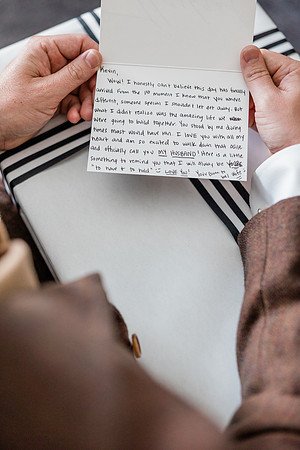 Kevin,
Wow! I honestly can't believe this day has finally
arrived. From the 1st moment I knew that you were
different, someone special I shouldn't let get away. But
what I didn't realize was the amazing life we
were going to build together. You stood by me during
times most would have run. I love you with all my
heart and am so excited to walk down that aisle
and officially call you MY HUSBAND! Here is a little
something to remind you that I will always be
"to have & to hold" Love You!